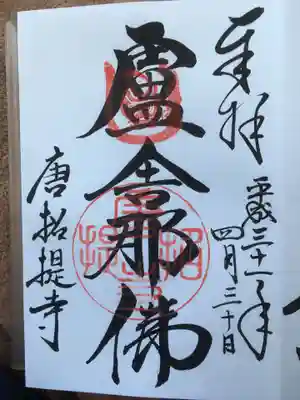 奉拝
平成三十一年
四月三十日
盧舎那佛
唐招提寺